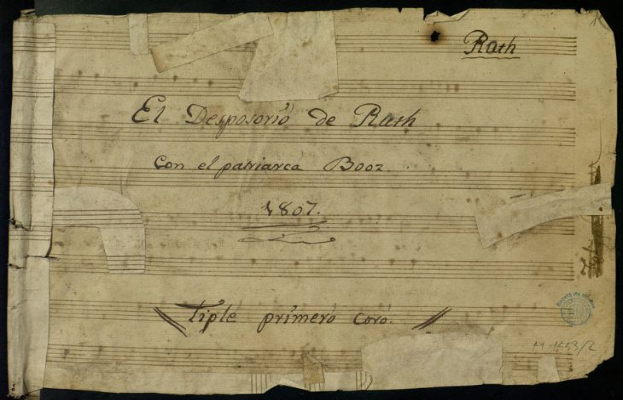 Ruth
El Desposorio de Ruth
Con el patriarca Booz.
1807.
Tiple primero coro.